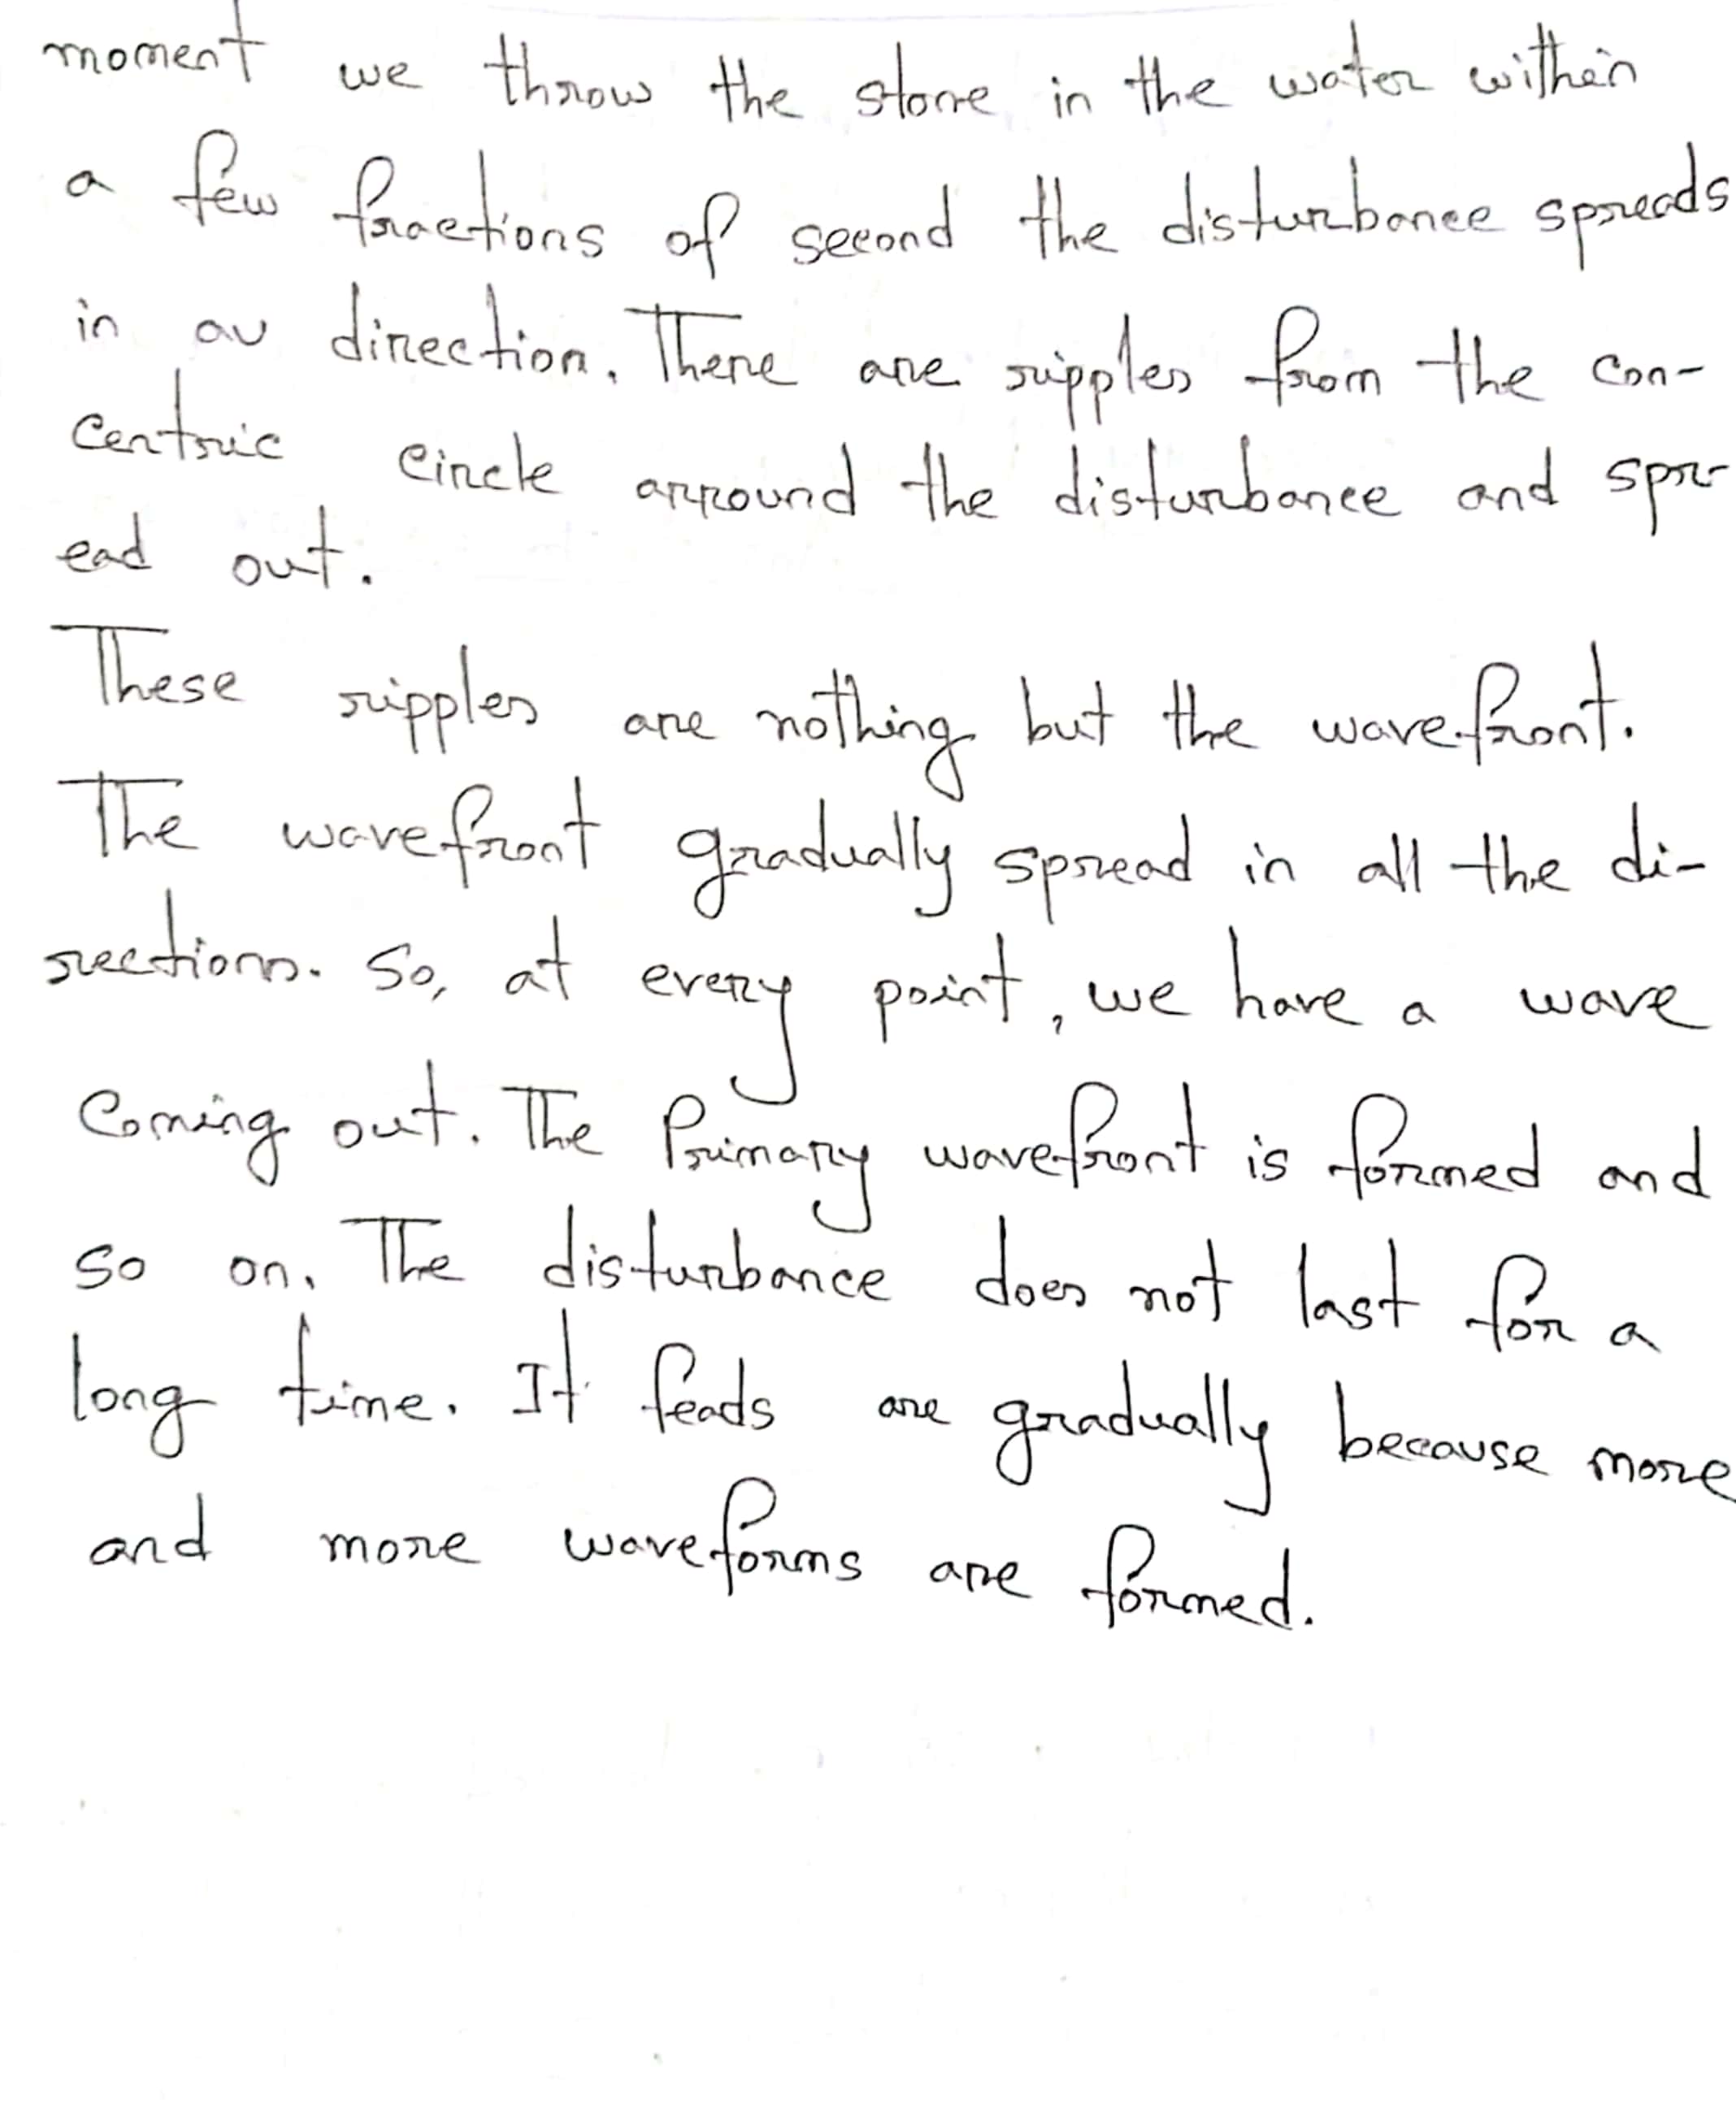 moment we throw the stone in the water within
a few fractions of second the disturbance spreads
in au direction. There are ripples from the con-
centric circle arround the disturbance and spr-
ead out.
These ripples are nothing but the wavefront.
The wavefront gradually spread in all the di-
rections. So, at every point, we have a wave
Coming out. The Primary wavefront is formed and
so on. The disturbance does not last for a
long time. It feads are gradually because more
and more waveforms are formed.